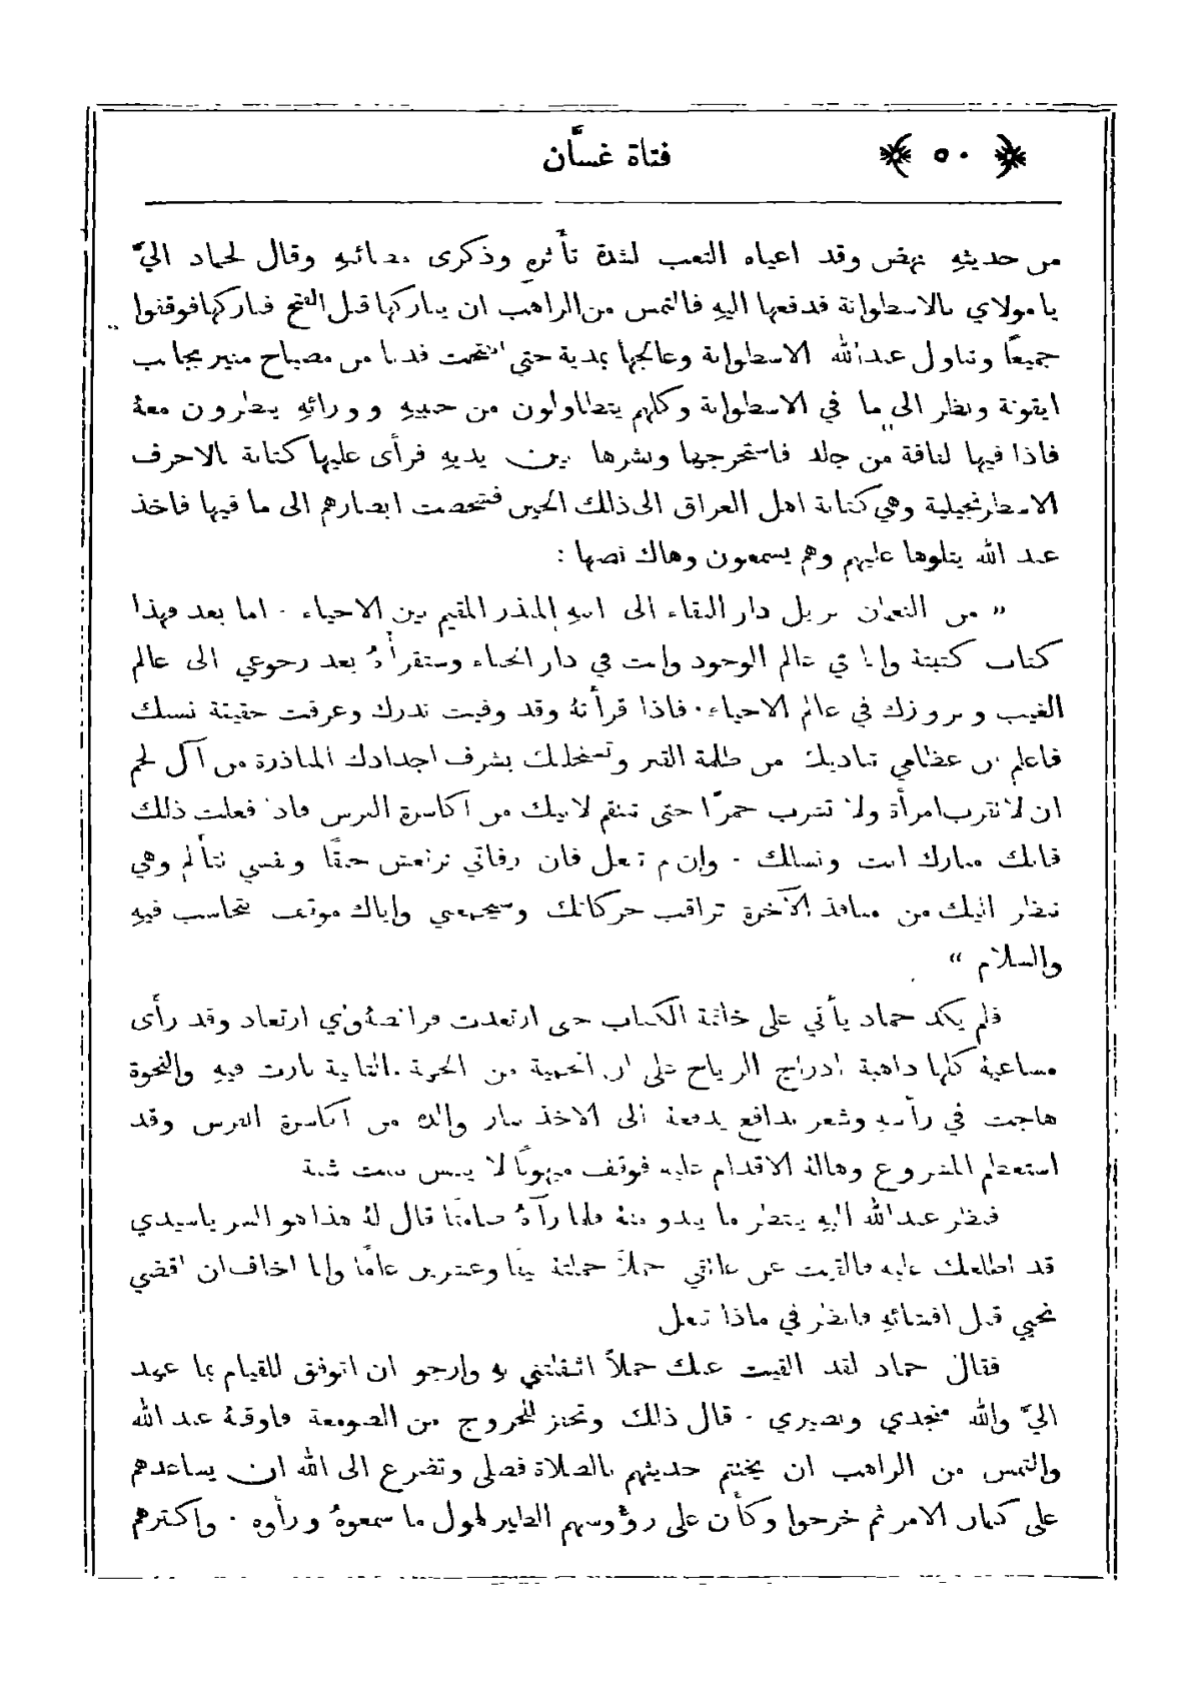 ﴿ ٥٠ ﴾ فتاة غسَّان
من حديثهِ نهض وقد اعياه التعب لشدة تأثرهِ وذكرى مصائبهِ وقال لحماد اليَّ
يا مولاي بالاسطوانة فدفعها اليهِ فالتمس من الراهب ان يباركها قبل الفتح فباركها فوقفوا
جميعًا وتناول عبد الله الاسطوانة وعالجها بمدية حتى انفتحت فدنا من مصباح منير بجانب
ايقونة ونظر الى ما في الاسطوانة وكلهم يتطاولون من جنبيهِ وورائهِ ينظرون معهُ
فاذا فيها لفافة من جلد فاستخرجها ونشرها بين يديهِ فرأى عليها كتابة بالاحرف
الاسطرنجيلية وهي كتابة اهل العراق الى ذلك الحين فشخصت ابصارهم الى ما فيها فاخذ
عبد الله يتلوها عليهم وهم يسمعون وهاك نصها :
” من النعمان نزيل دار البقاء الى ابنهِ المنذر المقيم بين الاحياء . اما بعد فهذا
كتاب كتبتهُ وانا في عالم الوجود وانت في دار الخفاء وستقرأُهُ بعد رجوعي الى عالم
الغيب وبروزك في عالم الاحياء. فاذا قرأتهُ وقد وفيت نذرك وعرفت حقيقة نسبك
فاعلم ان عظامي تناديك من ظلمة القبر وتستحلفك بشرف اجدادك المناذرة من آل لخم
ان لا نقرب امرأة ولا تشرب خمرًا حتى تنتقم لابيك من اكاسرة الفرس فاذا فعلت ذلك
فانك مبارك انت ونسلك . وان لم تفعل فان رفاتي ترتعش حنقًا ونفسي نتألم وهي
تنظر اليك من منافذ الآخرة تراقب حركاتك وسيجمعني واياك موقف نتحاسب فيهِ
والسلام “
فلم يكد حماد يأتي على خاتمة الكتاب حتى ارتعدت فرائصهُ اي ارتعاد وقد رأى
مساعيهُ كلها ذاهبة ادراج الرياح على ان الحمية ثارت فيهِ والنخوة
هاجت في رأسهِ وشعر بدافع يدفعهُ الى الاخذ بثار والدهِ من اكاسرة الفرس وقد
استعظم المشروع وهالهُ الاقدام عليهِ فوقف مبهوتًا لا ينبس ببنت شفة
فنظر عبد الله اليهِ ينتظر ما يبدو منهُ فلما رآهُ صامتًا قال لهُ هذا هو السر ياسيدي
قد اطلعتك عليهِ فالقيت عن عاتقي حملاً حملتهُ نيفًا وعشرين عامًا وانا اخاف ان اقضي
نحبي قبل افشائهِ فانظر في ماذا تفعل
فقال حماد لقد القيت عنك حملاً اثقلتني بهِ وارجو ان اتوفق للقيام بما عهد
اليَّ والله منجدي ونصيري . قال ذلك وتحفز للخروج من الصومعة فاوقفهُ عبد الله
والتمس من الراهب ان يختتم حديثهم بالصلاة فصلى وتضرع الى الله ان يساعدهم
على كتمان الامر ثم خرجوا وكأن على رؤوسهم الطير لهول ما سمعوهُ ورأوه . واكثرهم